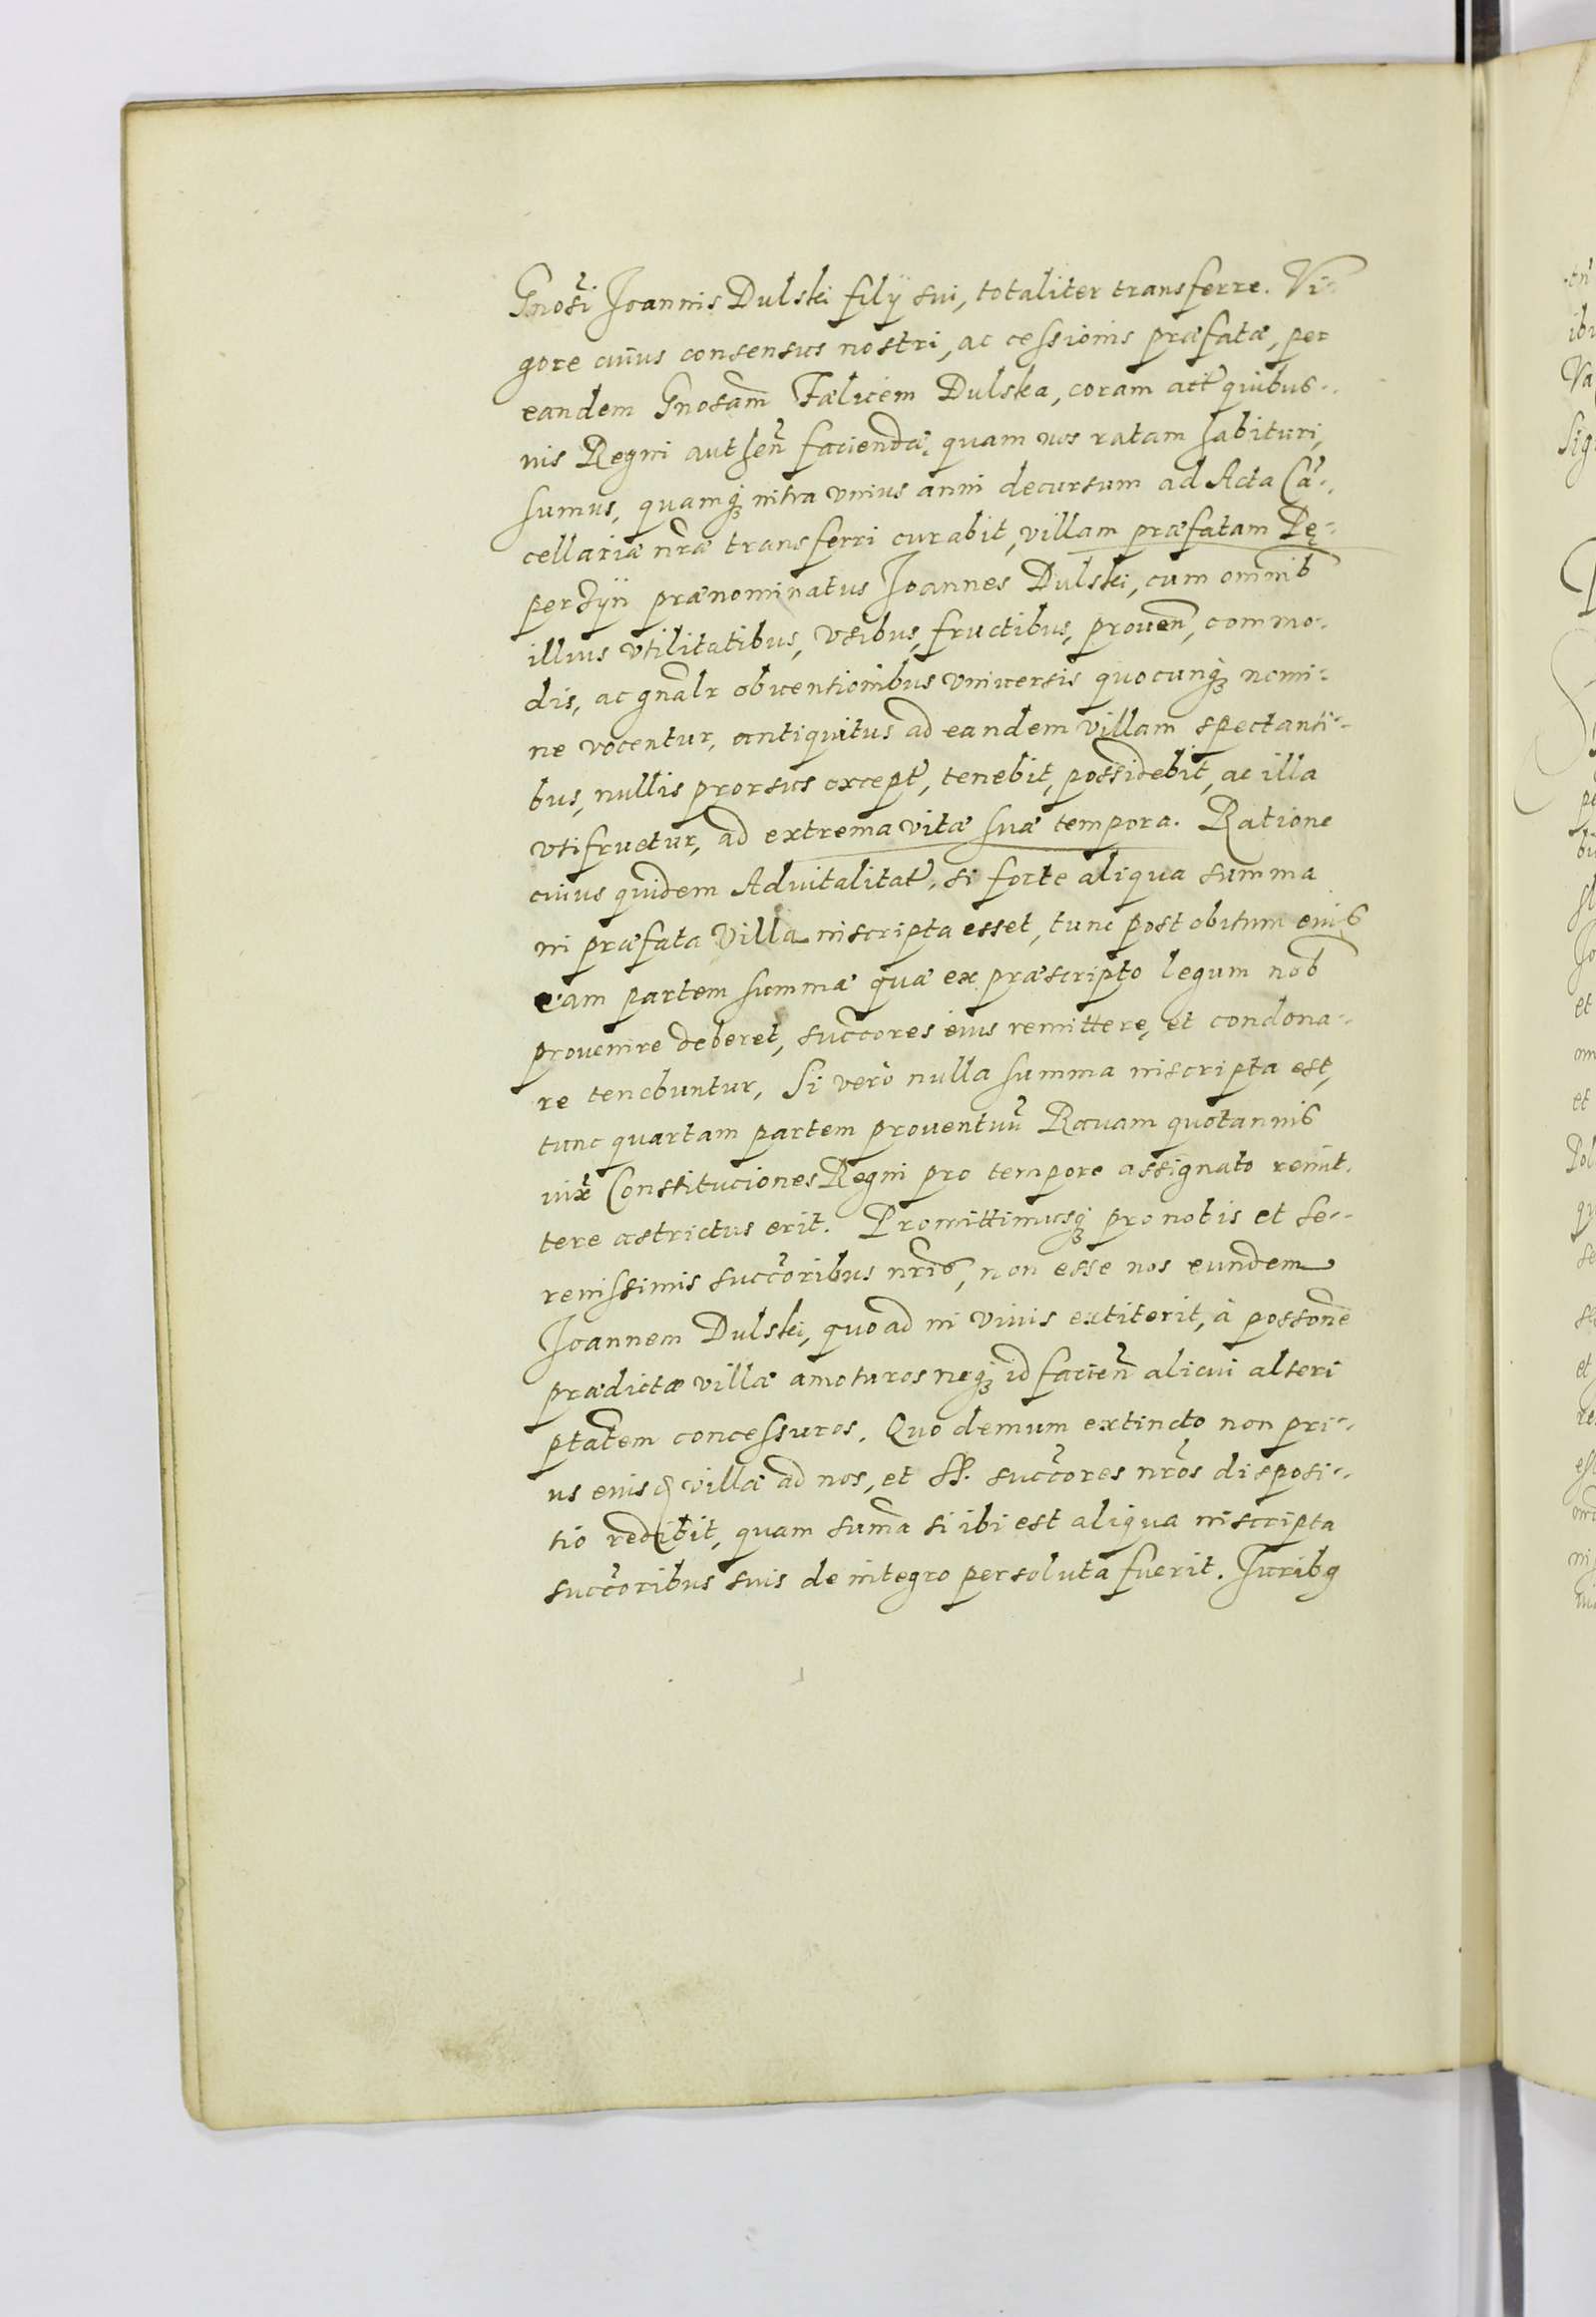 Gnosi Joannis Dulski filÿ sui, totaliter transferre. Vi-
gore cuius consensus nostri, ac cessionis præfatæ, per
eandem Gnosam Fælicem Dulska, coram act quibus-
vis Regni authen faciendæ, quam nos ratam habituri
sumus, quamq intra vnius anni decursum ad Acta Cā-
cellariæ nræ transferri curabit, villam præfatam Pę-
perzyn prænominatus Joannes Dulski, cum omnib
illius vtilitatibus, vsibus, fructibus, prouen, commo-
dis, ac gnalr obuentionibus vniuersis quocunq nomi-
ne vocentur, antiquitus ad eandem villam spectanti-
bus, nullis prorsus except, tenebit, possidebit, ac illa
vtifruetur, ad extrema vitæ suæ tempora. Ratione
cuius quidem Aduitalitat, si forte aliqua summa
in præfata villa inscripta esset, tunc post obitum eius
eam partem summæ quæ ex præscripto legum nob
prouenire deberet, succores eius remittere, et condona-
re tenebuntur, Si verò nulla summa inscripta est,
tunc quartam partem prouentuū Rauam quotannis
iux Constituciones Regni pro tempore assignato remit-
tere astrictus erit. Promittimusq pro nobis et Se-
renissimis succoribus nris, non esse nos eundem
Joannem Dulski, quoad in viuis extiterit, à possone
prædictæ villæ amoturos neq id facien alicui alteri
ptatem concessuros. Quo demum extincto non pri-
us eiusd villæ ad nos, et SS. succores nros disposi-
tio redibit, quam suma si ibi est aliqua inscripta
succoribus suis de integro persoluta fuerit. Juribq